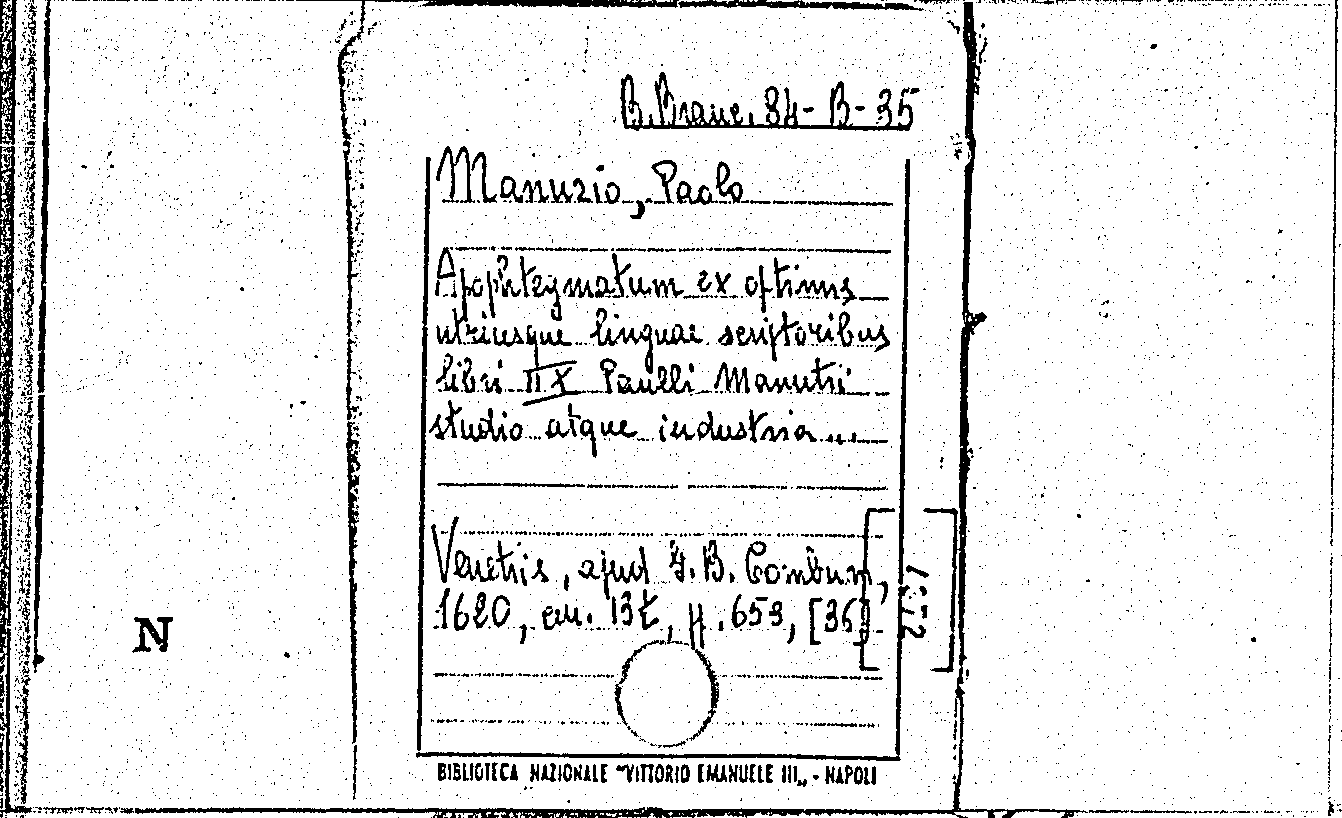 B. Branc. 84-B-35
Manuzio, Paolo
Apophtegmatum ex optimis
utriusque linguae scriptoribus
libri IIX Paulli Manutii
studio atque industria...
Venetiis, apud I. B. Combum,
1620, cm. 13t, pp. 653, [36].
N
BIBLIOTECA NAZIONALE "VITTORIO EMANUELE III„ - NAPOLI